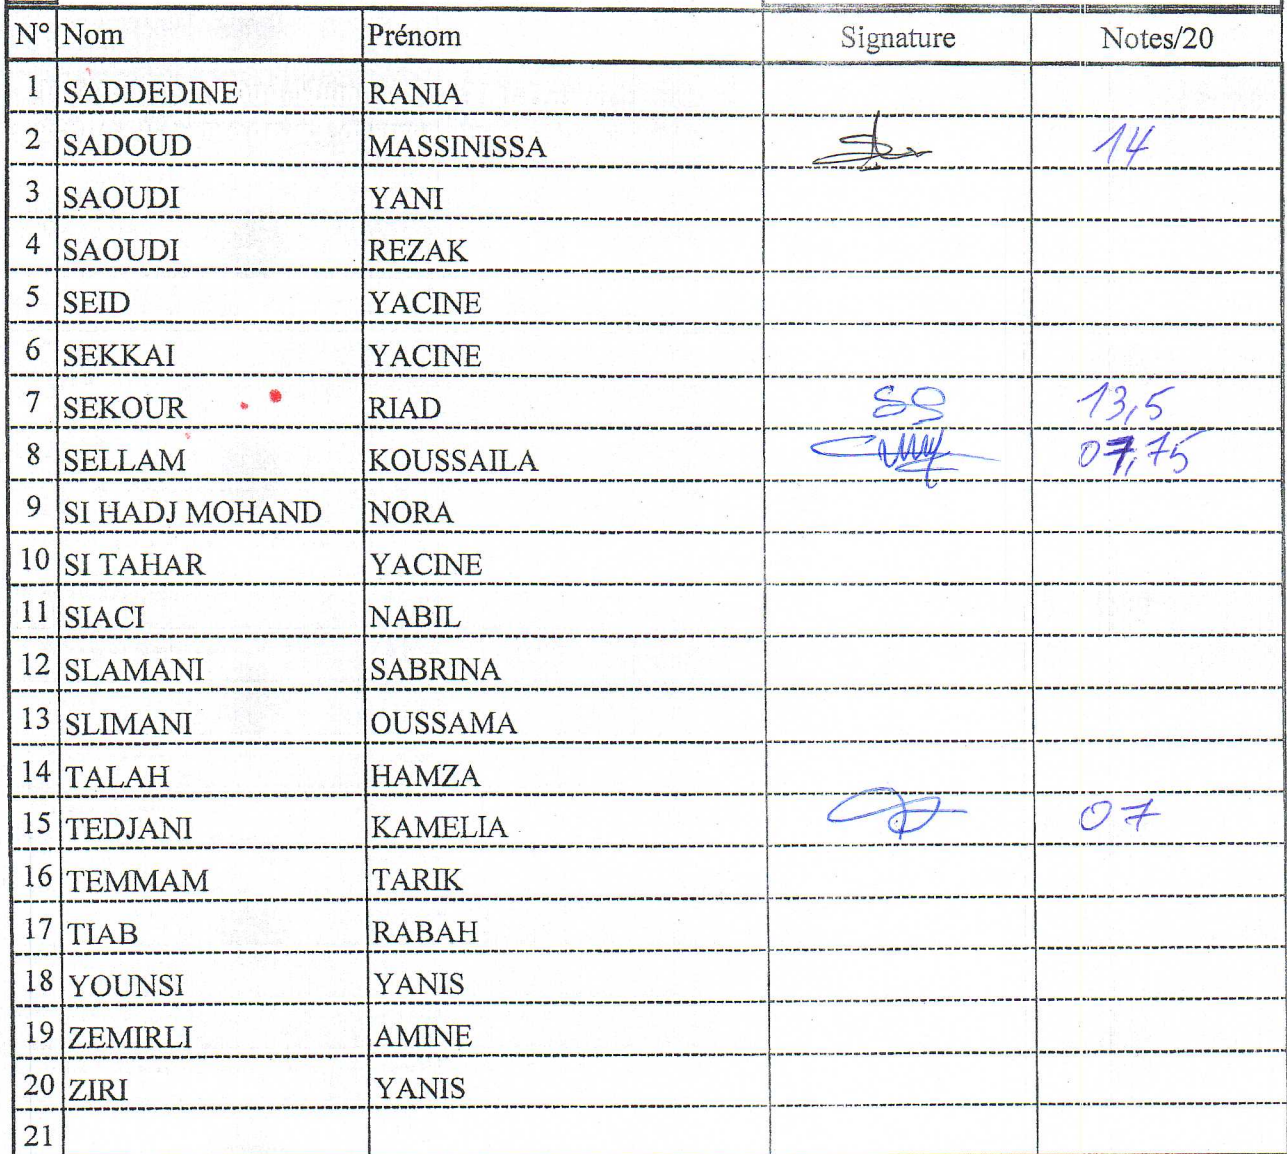 N° Nom Prénom Signature Notes/20
1 SADDEDINE RANIA
2 SADOUD MASSINISSA 14
3 SAOUDI YANI
4 SAOUDI REZAK
5 SEID YACINE
6 SEKKAI YACINE
7 SEKOUR RIAD 13,5
8 SELLAM KOUSSAILA 07,75
9 SI HADJ MOHAND NORA
10 SI TAHAR YACINE
11 SIACI NABIL
12 SLAMANI SABRINA
13 SLIMANI OUSSAMA
14 TALAH HAMZA
15 TEDJANI KAMELIA 07
16 TEMMAM TARIK
17 TIAB RABAH
18 YOUNSI YANIS
19 ZEMIRLI AMINE
20 ZIRI YANIS
21